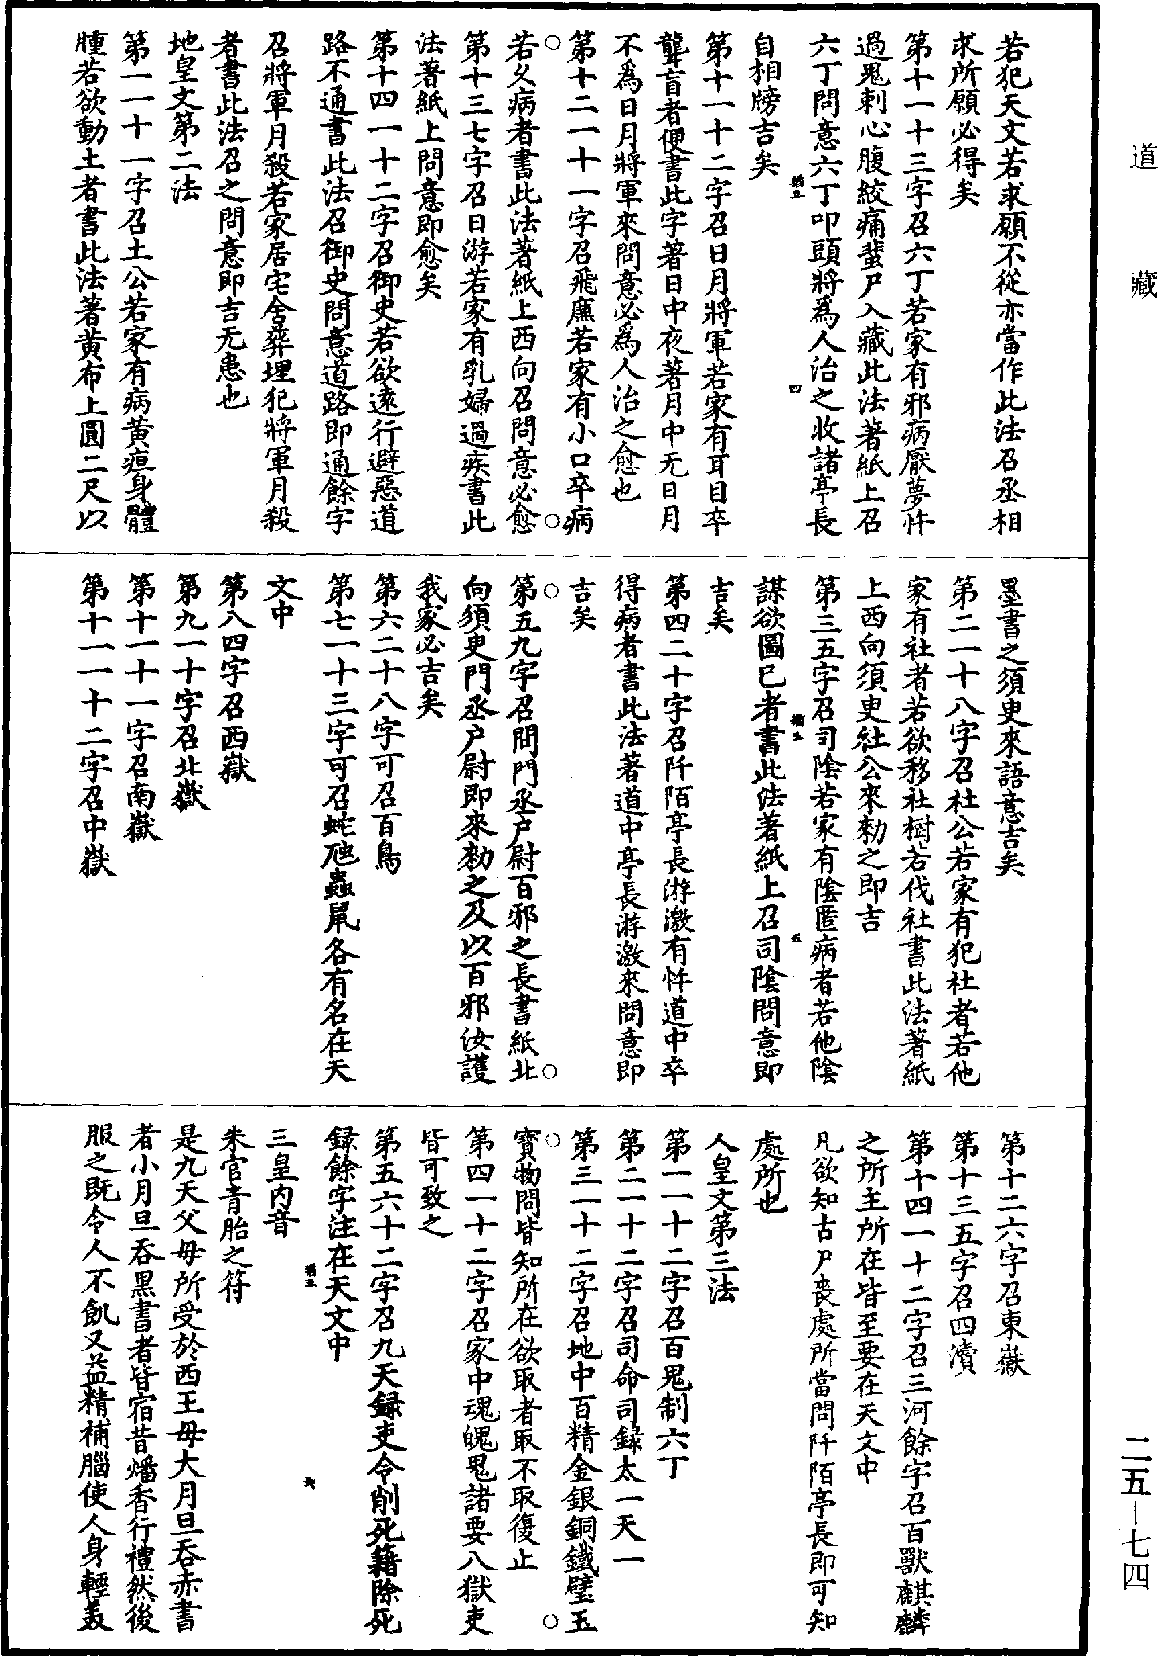 道藏
若犯天文若求願不從亦當作此法召丞相
求所願必得矣
第十一十三字召六丁若家有邪病厭夢忤
過鬼刺心腹絞痛蜚尸入藏此法著紙上召
六丁問意六丁叩頭將為人治之收諸亭長
自相牓吉矣
第十一十二字召日月將軍若家有耳目卒
聾盲者便書此字著日中夜著月中无日月
不為日月將軍來問意必為人治之愈也
第十二一十一字召飛廉若家有小口卒病
若久病者書此法著紙上西向召問意必愈
第十三七字召日游若家有乳婦過疾書此
法著紙上問意即愈矣
第十四一十二字召御史若欲遠行避惡道
路不通書此法召御史問意道路即通餘字
召將軍月殺若家居宅舍葬埋犯將軍月殺
者書此法召之問意即吉无患也
地皇文第二法
第一一十一字召土公若家有病黃疸身體
腫若欲動土者書此法著黃布上圓二尺以
墨書之須臾來語意吉矣
第二一十八字召社公若家有犯社者若他
家有社者若欲移社樹若伐社書此法著紙
上西向須臾社公來勑之即吉
第三五字召司陰若家有陰匿病者若他陰
謀欲圖已者書此法著紙上召司陰問意即
吉矣
第四二十字召阡陌亭長游激有忤道中卒
得病者書此法著道中亭長游激來問意即
吉矣
第五九字召問門丞户尉百邪之長書紙北
向須臾門丞户尉即來勑之及以百邪汝護
我家必吉矣
第六二十八字可召百鳥
第七一十三字可召蛇虺蟲鼠各有名在天
文中
第八四字召西嶽
第九一十字召北嶽
第十一十一字召南嶽
第十一一十二字召中嶽
第十二六字召東嶽
第十三五字召四瀆
第十四一十二字召三河餘字召百獸麒麟
之所主所在皆至要在天文中
凡欲知古尸喪處所當問阡陌亭長即可知
處所也
人皇文第三法
第一一十二字召百鬼制六丁
第二一十二字召司命司錄太一天一
第三一十二字召地中百精金銀銅鐵璧玉
寶物問皆知所在欲取者取不取復止
第四一十二字召家中魂魄鬼諸要八獄吏
皆可致之
第五六十二字召九天録吏令削死籍除死
録餘字注在天文中
三皇內音
朱官青胎之符
是九天父母所受於西王母大月旦吞赤書
者小月旦吞黑書者皆宿昔燔香行禮然後
服之既令人不飢又益精補腦使人身輕轰
二五—七四